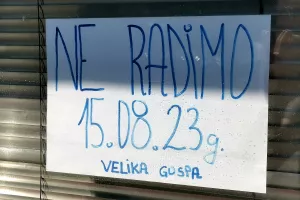 NE RADIMO
15.08.23g.
VELIKA GOSPA